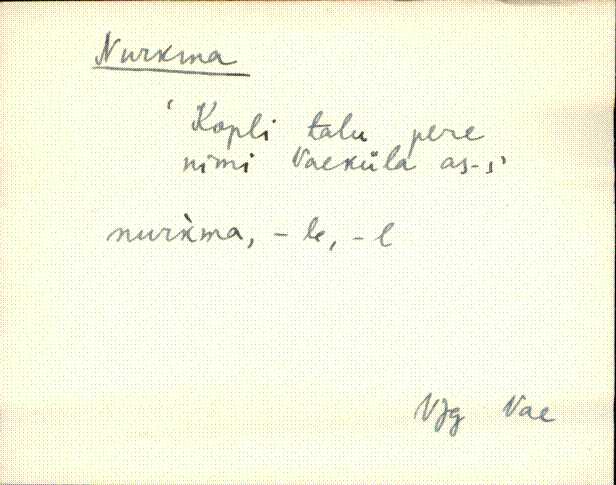 Nurkma
'Kopli talu pere
nimi Vaeküla as-s'
nurk̀ma, -le, -l
VJg Vae